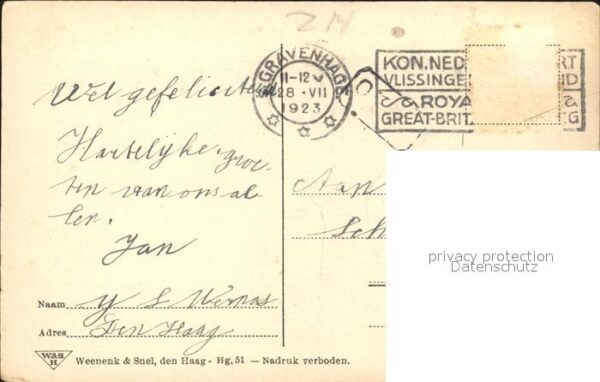 ZN
'S GRAVENHAGE
11-12 V
28 · VII
1923
KON.NED RT
VLISSINGE D
ROYA
GREAT-BRIT. G
Wel gefeliciteerd
Hartelijke groe-
ten van ons al-
len.
Jan
Aan
Sch
privacy protection
Datenschutz
Naam
Adres Den Haag
W&S
H
Weenenk & Snel, den Haag - Hg, 51 — Nadruk verboden.